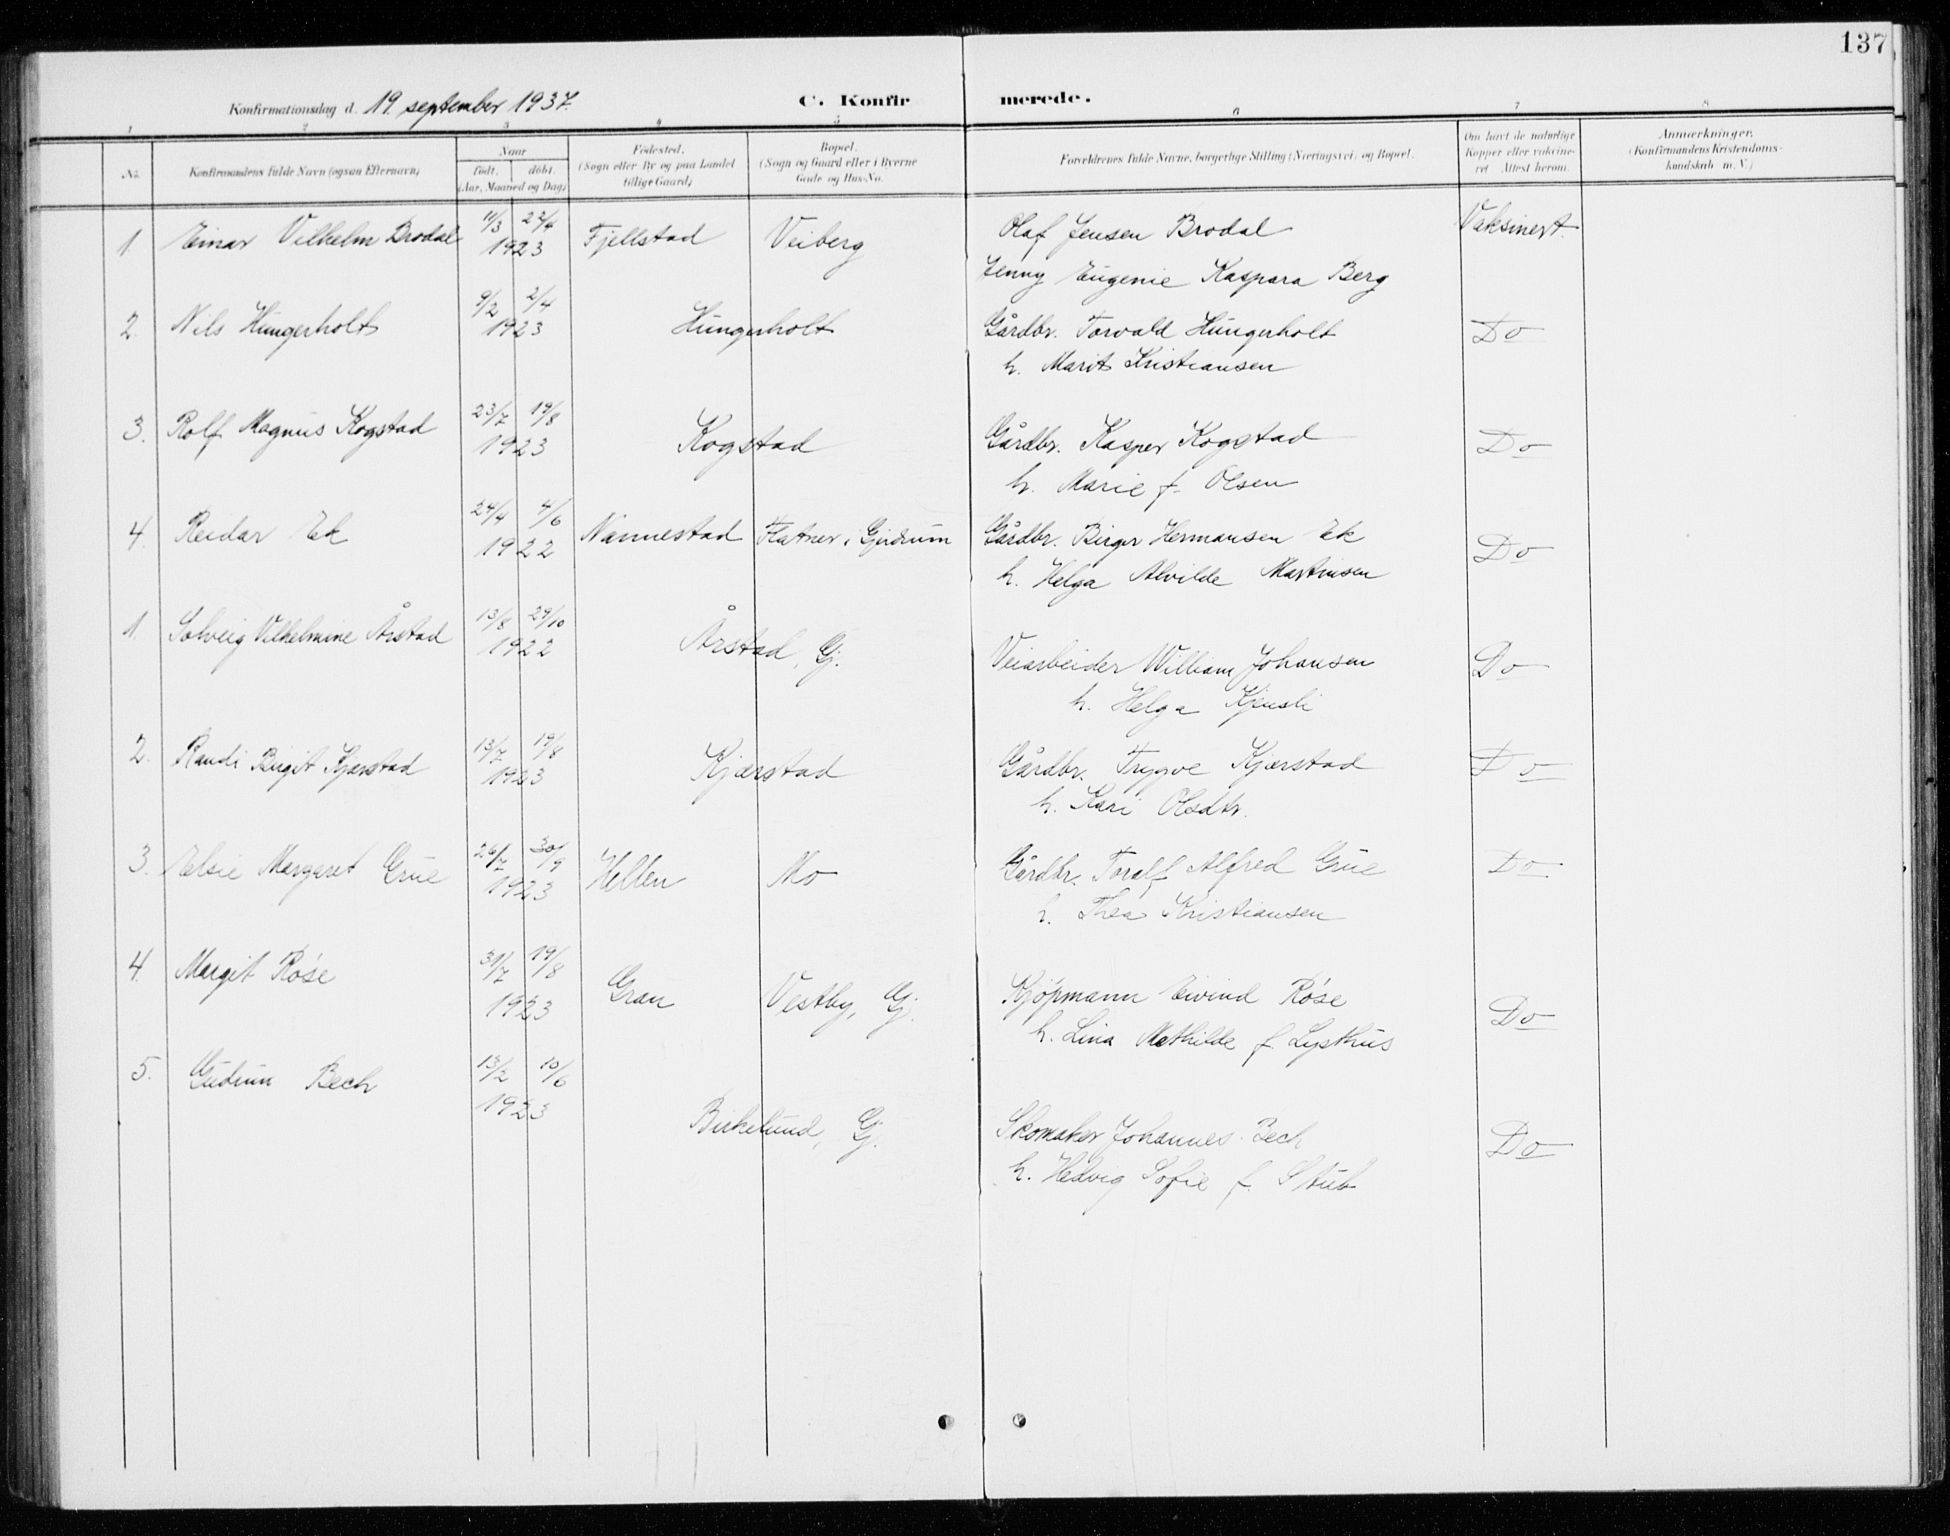 137
Konfirmationsdag d. 19. september 1937.
C. Konfirmerede.
1 2 3 4 5 6 7 8
No. Konfirmandens fulde Navn (ogsaa Efternavn) Naar født. døbt. (Aar, Maaned og Dag) Fødested. (Sogn eller By og paa Landet tillige Gaard) Bopæl. (Sogn og Gaard eller i Byerne Gade og Hus-No. Forældrenes fulde Navne, borgerlige Stilling (Næringsvei) og Bopæl. Om havt de naturlige Kopper eller vakcineret. Attest herom. Anmærkninger. (Konfirmandens Kristendomskundskab m. V.)
1. Einar Vilhelm Brodal 11/3 22/4 1923 Fjellstad Veiberg Olaf Jensen Brodal Vaksinert.
Jenny Eugenie Kaspara Berg
2. Nils Hungerholt 9/2 2/4 1923 Hungerholt Gårdbr. Torvald Hungerholt Do
h. Marit Kristiansen
3. Rolf Magnus Kogstad 23/7 19/8 1923 Kogstad Gårdbr. Kasper Kogstad Do
h. Marie f. Olsen
4. Reidar Ek 24/4 4/6 1922 Nannestad Flatner i Gjerdrum Gårdbr. Birger Hermansen Ek Do
h. Helga Alvilde Martinsen
1. Solveig Vilhelmine Årstad 13/8 29/10 1922 Årstad, Gj. Veiarbeider William Johansen Do
h. Helga Kjensli
2. Randi Birgit Kjærstad 13/7 19/8 1923 Kjærstad Gårdbr. Trygve Kjærstad Do
h. Kari Olsdtr.
3. Elsie Margaret Grue 26/7 30/9 1923 Hellen Mo Gårdbr. Toralf Alfred Grue Do
h. Thea Kristiansen
4. Margit Røse 31/7 19/8 1923 Gran Vestby, Gj. Kjøpmann Eivind Røse Do
h. Lina Mathilde f. Lysthus
5. Gudrun Bech 13/2 10/6 1923 Birkelund, Gj. Skomaker Johannes Bech Do
h. Hedvig Sofie f. Stub